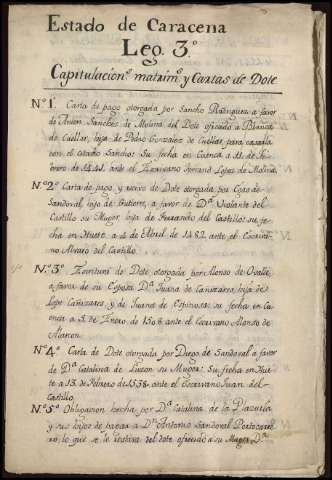 Estado de Caracena
Leg. 3º
Capitulacion.s matrim.s y Cartas de Dote
N.º 1. Carta de pago otorgada por Sancho Rodriguez a favor
de Anton Sanchez de Molina del Dote ofrecido a Blanca
de Cuellar, hija de Pedro Gonzalez de Cuellar, para casarla
con el citado Sancho: Su fecha en Cuenca a 11. de Fe-
brero de 1441. ante el Escrivano Ferrand Lopez de Molina.
N.º 2.º Carta de pago, y recivo de Dote otorgada por Cosme de
Sandoval, hijo de Gutierre, a favor de D.ª Violante del
Castillo su Muger, hija de Fernando del Castillo: su fe-
cha en Huete a 4 de Abril de 1482. ante el Escriva-
no Alvaro del Castillo.
N.º 3.º Escritura de Dote, otorgada por Alonso de Ovalle,
a favor de su Esposa D.ª Juana de Cañizares, hija de
Lope Cañizares, y de Juana de Espinosa: su fecha en Cu-
enca a 3. de Enero de 1508. ante el Escrivano Alonso de
Alarcon.
N.º 4.º Carta de Dote otorgada por Diego de Sandoval a favor
de D.ª Catalina de Luzon su Muger: Su fecha en Hue-
te a 13. de Febrero de 1538. ante el Escrivano Juan del
Castillo.
N.º 5.º Obligacion hecha por D.ª Catalina de la
y sus hijos de pagar a D.n Antonio Sandoval Portocarre-
ro, lo que se le restava del dote ofrecido a su Muger D.ª